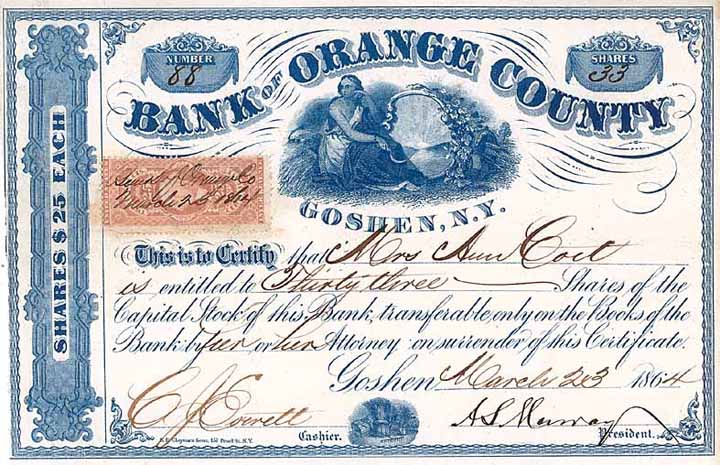 NUMBER
88
SHARES
33
BANK OF ORANGE COUNTY
GOSHEN, N.Y.
SHARES $25 EACH
March 23 1864
This is to Certify that Mrs Ann Coit
is entitled to Thirty three Shares of the
Capital Stock of this Bank, transferable only on the Books of the
Bank by her or her Attorney on surrender of this Certificate.
Goshen March 23 1864
C J Everett
Cashier.
A S Murray
President.